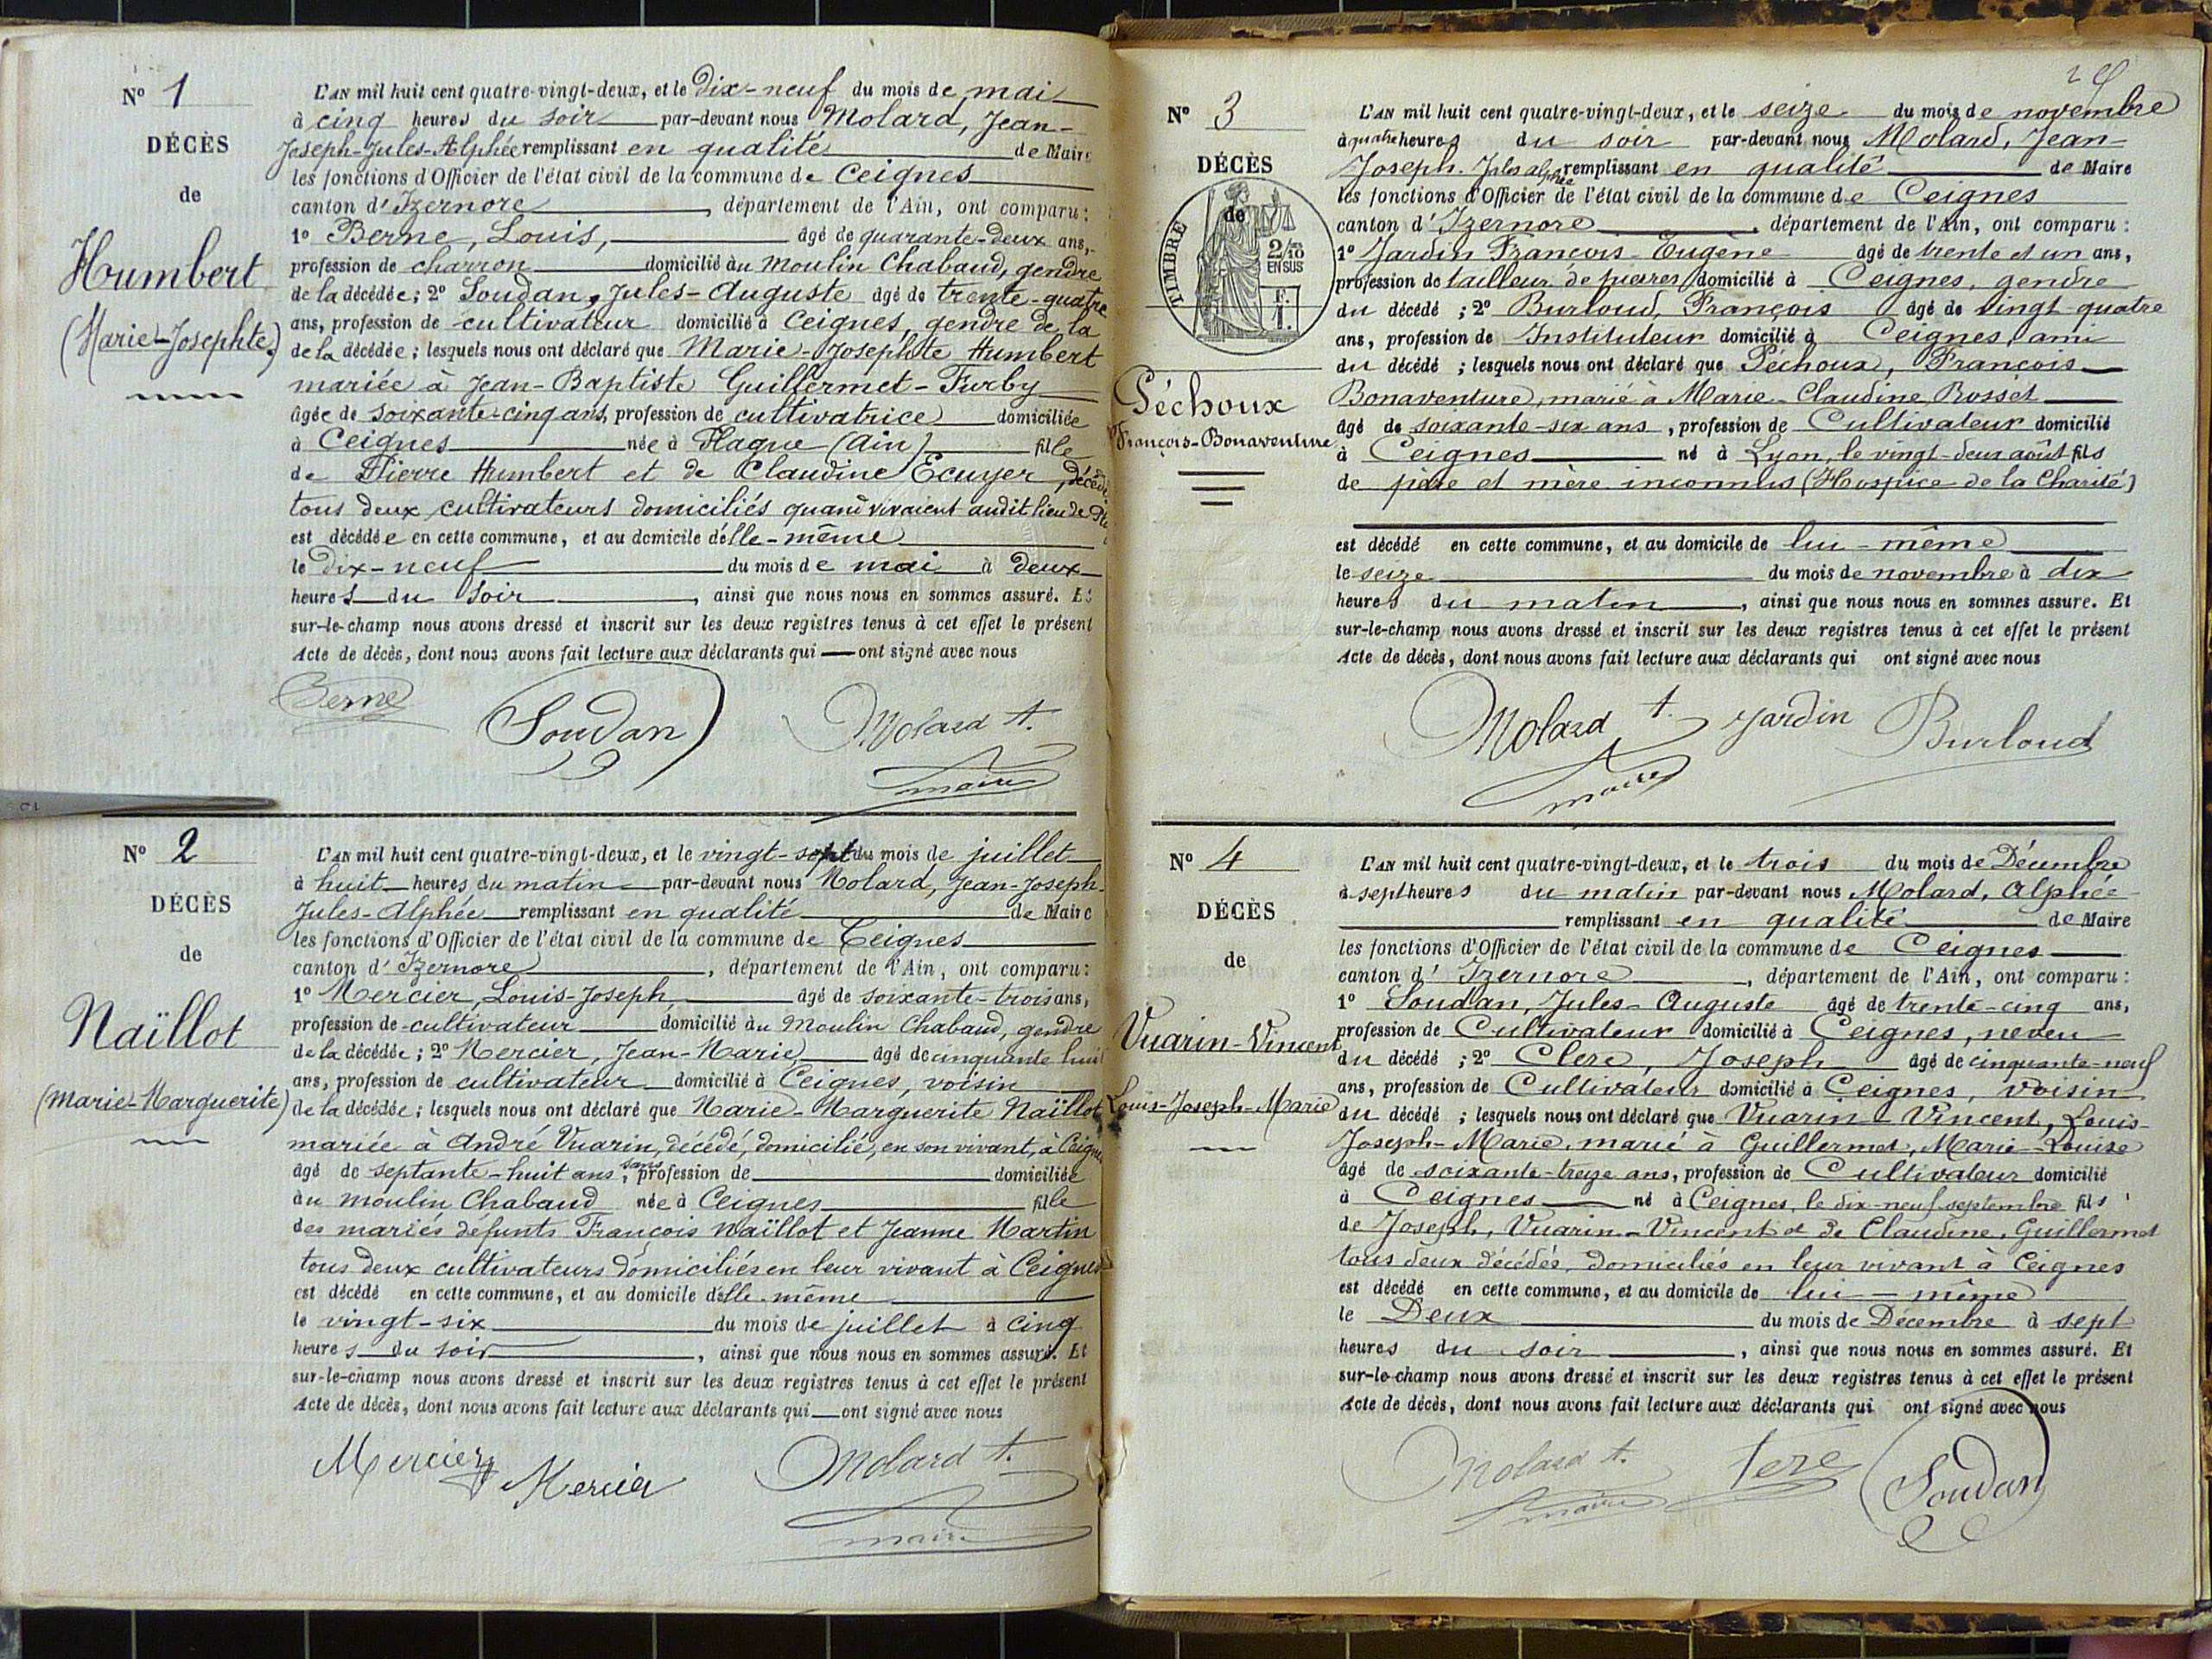 Nº 1
DÉCÈS
de
Humbert
(Marie-Josephte)
L'AN mil huit cent quatre-vingt-deux, et le Dix-neuf du mois de mai
à cinq heures du soir par-devant nous Molard, Jean-
Joseph-Jules-Alphée remplissant en qualité de Maire
les fonctions d'Officier de l'état civil de la commune de Ceignes
canton d'Izernore, département de l'Ain, ont comparu :
1º Berne, Louis, âgé de quarante-deux ans,
profession de charron domicilié au Moulin Chabaud, gendre
de la décédée ; 2º Soudan, Jules-Auguste âgé de trente-quatre
ans, profession de cultivateur domicilié à Ceignes, gendre de la
de la décédée ; lesquels nous ont déclaré que Marie-Josephte Humbert
mariée à Jean-Baptiste Guillermet-Furby
âgée de soixante-cinq ans, profession de cultivatrice domiciliée
à Ceignes née à Plagne (Ain) fille
de Pierre Humbert et de Claudine Ecuyer,
tous deux cultivateurs domiciliés quand vivaient audit lieu de
est décédée en cette commune, et au domicile d'elle-même
le Dix-neuf du mois de mai à Deux
heures du soir, ainsi que nous nous en sommes assuré. Et
sur-le-champ nous avons dressé et inscrit sur les deux registres tenus à cet effet le présent
Acte de décès, dont nous avons fait lecture aux déclarants qui ont signé avec nous
Berne Soudan Molard A.
maire
Nº 2
DÉCÈS
de
Naïllot
(Marie-Marguerite)
L'AN mil huit cent quatre-vingt-deux, et le vingt-sept du mois de juillet
à huit heures du matin par-devant nous Molard, Jean-Joseph-
Jules-Alphée remplissant en qualité de Maire
les fonctions d'Officier de l'état civil de la commune de Ceignes
canton d'Izernore, département de l'Ain, ont comparu :
1º Mercier, Louis-Joseph âgé de soixante-trois ans,
profession de cultivateur domicilié au Moulin Chabaud, gendre
de la décédée ; 2º Mercier, Jean-Marie âgé de cinquante huit
ans, profession de cultivateur domicilié à Ceignes, voisin
de la décédée ; lesquels nous ont déclaré que Marie-Marguerite Naïllot
mariée à André Vuarin, décédé, domicilié, en son vivant, à Ceignes
âgé de septante-huit ans, sans profession de domiciliée
au moulin Chabaud née à Ceignes fille
des mariés défunts François Naïllot et Jeanne Martin
tous deux cultivateurs domiciliés en leur vivant à Ceignes
est décédé en cette commune, et au domicile d'elle-même
le vingt-six du mois de juillet à cinq
heures du soir, ainsi que nous nous en sommes assuré. Et
sur-le-champ nous avons dressé et inscrit sur les deux registres tenus à cet effet le présent
Acte de décès, dont nous avons fait lecture aux déclarants qui ont signé avec nous
Mercier Mercier Molard A.
maire
Nº 3
DÉCÈS
de
TIMBRE
2/10
EN SUS
Péchoux
François-Bonaventure
L'AN mil huit cent quatre-vingt-deux, et le seize du mois de novembre
à quatre heures du soir par-devant nous Molard, Jean-
Joseph-Jules alphée remplissant en qualité de Maire
les fonctions d'Officier de l'état civil de la commune de Ceignes
canton d'Izernore, département de l'Ain, ont comparu :
1º Jardin François-Eugène âgé de trente et un ans,
profession de tailleur de pierres domicilié à Ceignes, gendre
du décédé ; 2º Burloud, François âgé de vingt-quatre
ans, profession de Instituteur domicilié à Ceignes, ami
du décédé ; lesquels nous ont déclaré que Péchoux, François
Bonaventure, marié à Marie-Claudine, Rosset
âgé de soixante-six ans, profession de Cultivateur domicilié
à Ceignes né à Lyon, le vingt-deux août fils
de père et mère inconnus (Hospice de la Charité)
est décédé en cette commune, et au domicile de lui-même
le seize du mois de novembre à dix
heures du matin, ainsi que nous nous en sommes assuré. Et
sur-le-champ nous avons dressé et inscrit sur les deux registres tenus à cet effet le présent
Acte de décès, dont nous avons fait lecture aux déclarants qui ont signé avec nous
Molard A. Jardin Burloud
maire
Nº 4
DÉCÈS
de
Vuarin-Vincent
Louis-Joseph-Marie
L'AN mil huit cent quatre-vingt-deux, et le trois du mois de Décembre
à sept heures du matin par-devant nous Molard, Alphée
remplissant en qualité de Maire
les fonctions d'Officier de l'état civil de la commune de Ceignes
canton d'Izernore, département de l'Ain, ont comparu :
1º Soudan, Jules-Auguste âgé de trente-cinq ans,
profession de Cultivateur domicilié à Ceignes, neveu
du décédé ; 2º Clerc, Joseph âgé de cinquante-neuf
ans, profession de Cultivateur domicilié à Ceignes, voisin
du décédé ; lesquels nous ont déclaré que Vuarin-Vincent, Louis-
Joseph-Marie, marié à Guillermet, Marie-Louise
âgé de soixante-treize ans, profession de Cultivateur domicilié
à Ceignes né à Ceignes, le dix-neuf septembre fils
de Joseph, Vuarin-Vincent et de Claudine, Guillermet
tous deux décédés, domiciliés en leur vivant à Ceignes
est décédé en cette commune, et au domicile de lui-même
le Deux du mois de Décembre à sept
heures du soir, ainsi que nous nous en sommes assuré. Et
sur-le-champ nous avons dressé et inscrit sur les deux registres tenus à cet effet le présent
Acte de décès, dont nous avons fait lecture aux déclarants qui ont signé avec nous
Molard A. Soudan
maire